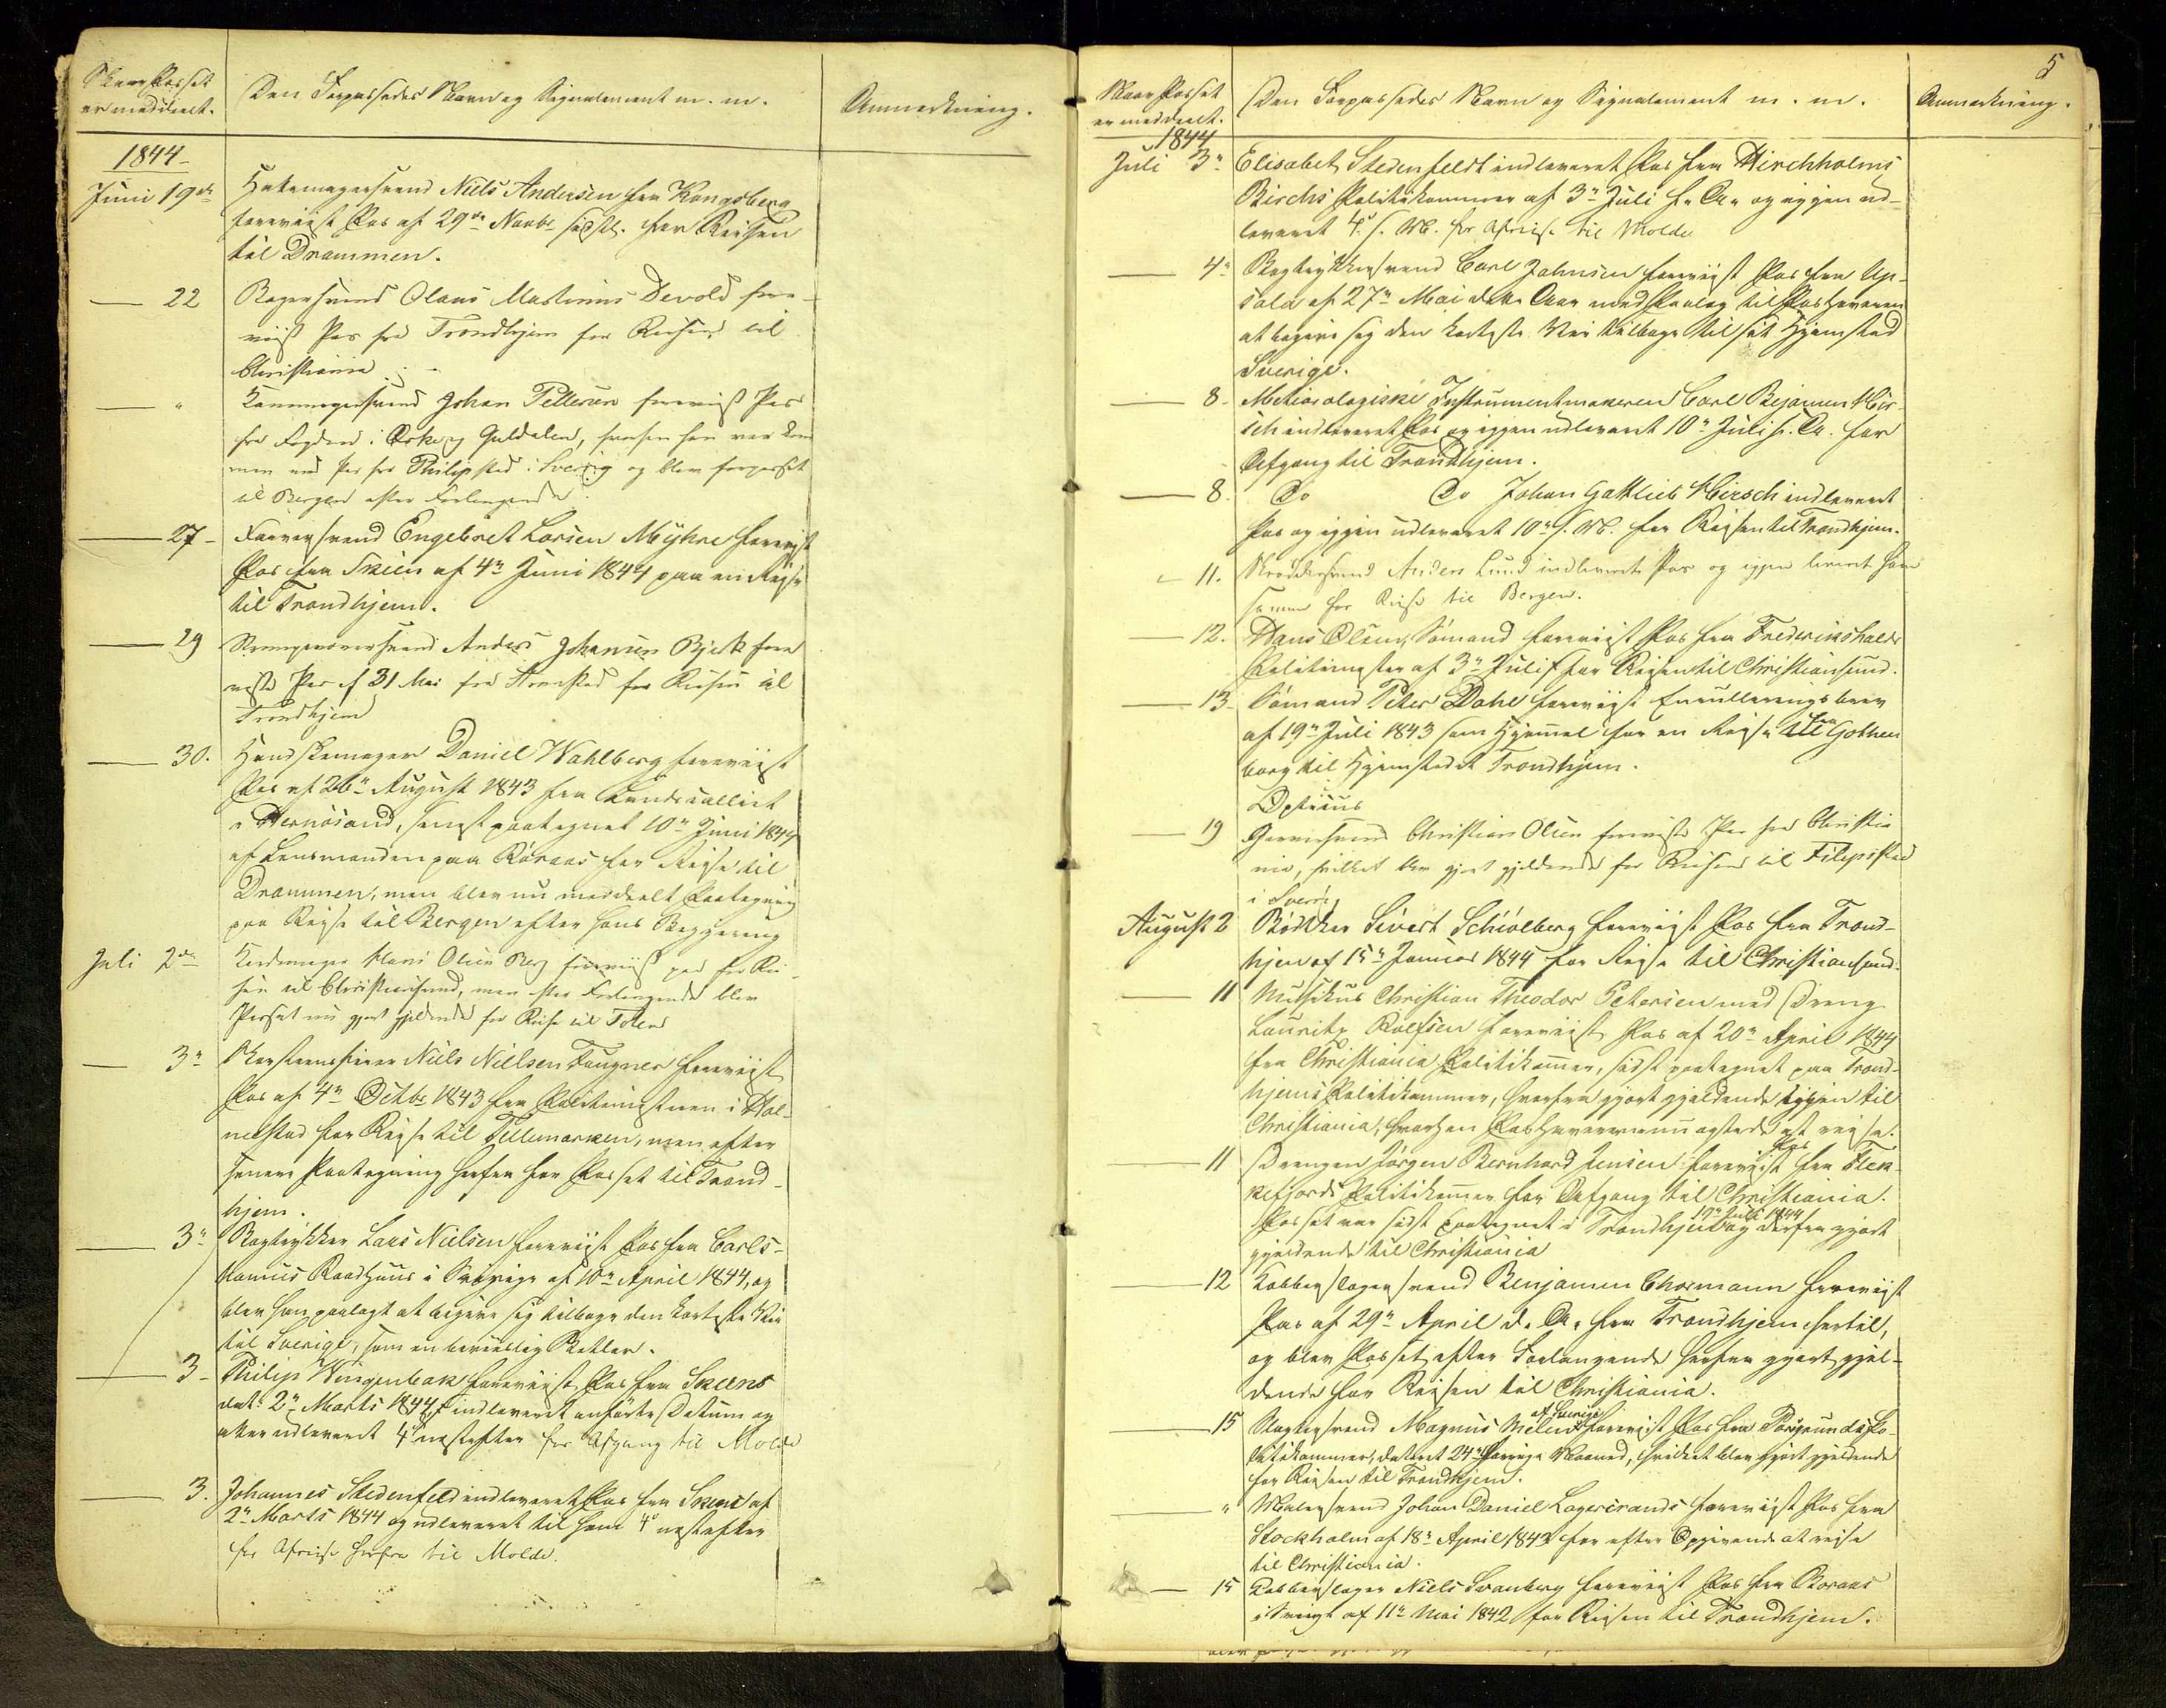 Naar Passet
er meddeelt.
Den Forpassedes Navn og Signalement m. m.
Anmærkning.
1844
Juni 19de
Hattemagersvend Niels Andersen fra Kongsberg
foreviist Pas af 29de Novbr sidstl. for Reisen
til Drammen.
22
Bagersvend Olaus Martinus Devold fore-
viist Pas fra Trondhjem for Reisen til
Christiania
"
Johan Pettersen foreviist Pas
fra Fogden i Ørke og Guldalen, hvorhen han var kom
men med Pas fra Philipstad i Sverrig og blev forpasset
til Bergen efter Forlangende.
27
Farversvend Engebret Larsen Myhre foreviist
Pas fra Skien af 4de Juni 1844 paa en Reise
til Trondhjem.
29
Anders Johansen Bjerk fore
viste Pas af 31 Mai fra for Reisen til
Trondhjem
30.
Handskemager Daniel Wahlberg foreviist
Pas af 26de August 1843 fra Landscalliet
i Hernösand, senest paategnet 10de Juni 1844
af Lensmanden paa Röraas for Reise til
Drammen, men blev nu meddeelt Paategning
paa Reise til Bergen efter hans Begjæring
Juli 2den
Hans Olsen Berg foreviist pas for Rei-
sen til Christiansund, men efter Forlangende blev
Passet nu gjort gjeldende for Reise til Toten
3die
Skorsteensfeier Niels Nielsen Faugner foreviist
Pas af 4de Octbr 1843 fra Politimesteren i Hol-
mestrand for Reise til Tellemarken, men efter
senere Paategning herfra for Passet til Trond-
hjem.
3die
Bogtrykker Lars Nielsen foreviist Pas fra Carls-
hamns Raadhuus i Sverige af 10de April 1844, og
blev ham paalagt at begive sig tilbage den korteste Vei
til Sverige, som en Betler.
3
Philip Wingenbak foreviist Pas fra Skeens
dat. 2den Marts 1844, indleveret anførte Datum og
atter udleveret 4de næstefter for Afgang til Molde
3.
Johannes Stedenfeld indleveret Pas fra Skeens af
2den Marts 1844 og udleveret til ham 4de næstefter
for Afreise herfra til Molde.
5
Naar Passet
er meddeelt.
Den Forpassedes Navn og Signalement m. m.
Anmærkning.
1844
Juli 3die
Elisabet Stedenfeldt indleveret Pas fra Hirchholms
Birchs Politikammer af 3die Juli f. A. og igjen ud-
leveret 4de s. M. for Afreise til Molde
4de
Bogtrykkersvend Carl Johnsen foreviist Pas fra Up-
sala af 27de Mai dette Aar med Paalæg til Pashaveren
at begive sig den korteste Vei tilbage til sit Hjemsted
Sverige.
8
Metiorologiske Instrumentmakeren Carl Bejamin Hir-
sch indleveret Pas og igjen udleveret 10de Juli s. A. for
Afgang til Trondhjem.
8.
Do Do Johan Gottlieb Hirsch indleveret
Pas og igjen udleveret 10de s. M. for Reisen til Trondhjem.
11.
Skræddersvend Anders Lund indleverte Pas og igjen leveret ham
samme for Reise til Bergen.
12.
Hans Olsen, Sømand foreviist Pas fra Frederikshalds
Politimester af 3die Juli for Reisen til Christiansund.
13
Sømand Peter Dahl foreviist Enrulleringsbrev
af 19de Juli 1843 som Hjemmel for en Reise fra Gothen
borg til Hjemstedet Trondhjem.
Opticus
19
Garversvend Christian Olsen foreviste Pas fra Christia
nia, hvilket blev gjort gjeldende for Reisen til Filipsstad
i Sverrig
August 2
Bødtker Sivert Schiølberg foreviist Pas fra Trond-
hjem af 15de Januar 1844 for Reise til Christiansund.
11
Musikus Christian Theodor Petersen med Dreng
Lauritz Rolfsen foreviist Pas af 20de April 1844
fra Christiania Politikammer, sidst paategnet paa Trond-
hjems Politikammer, hvorfra gjort gjeldende igjen til
Christiania, hvorhen Pashaveren nu agtede at reise.
11
Drengen Jørgen Bernhard Jensen foreviist Pas fra Flek-
kefjords Politikammer for Afgang til Christiania.
Passet var sidst paategnet i Trondhjem 19de Juli 1844 og derfra gjort
gjeldende til Christiania
12
Kobberslagersvend Benjamin Chormann foreviist
Pas af 29de April d. A. fra Trondhjem hertil,
og blev Passet efter Forlangende herfra gjort gjel-
dende for Reisen til Christiania.
15
Slagtersvend Magnus Melin af Sverige foreviist Pas fra Porsgrunds Po-
litikammer, dateret 24de forrige Maaned, hvilket blev gjort gjeldende
for Reisen til Trondhjem.
"
Malersvend Johan Daniel Lagerstrands foreviist Pas fra
Stockholm af 18de April 1843 for efter Opgivende at reise
til Christiania.
15
Kobberslager Niels Svanberg foreviist Pas fra Boraas
i Sverige af 11de Mai 1842 for Reisen til Trondhjem.